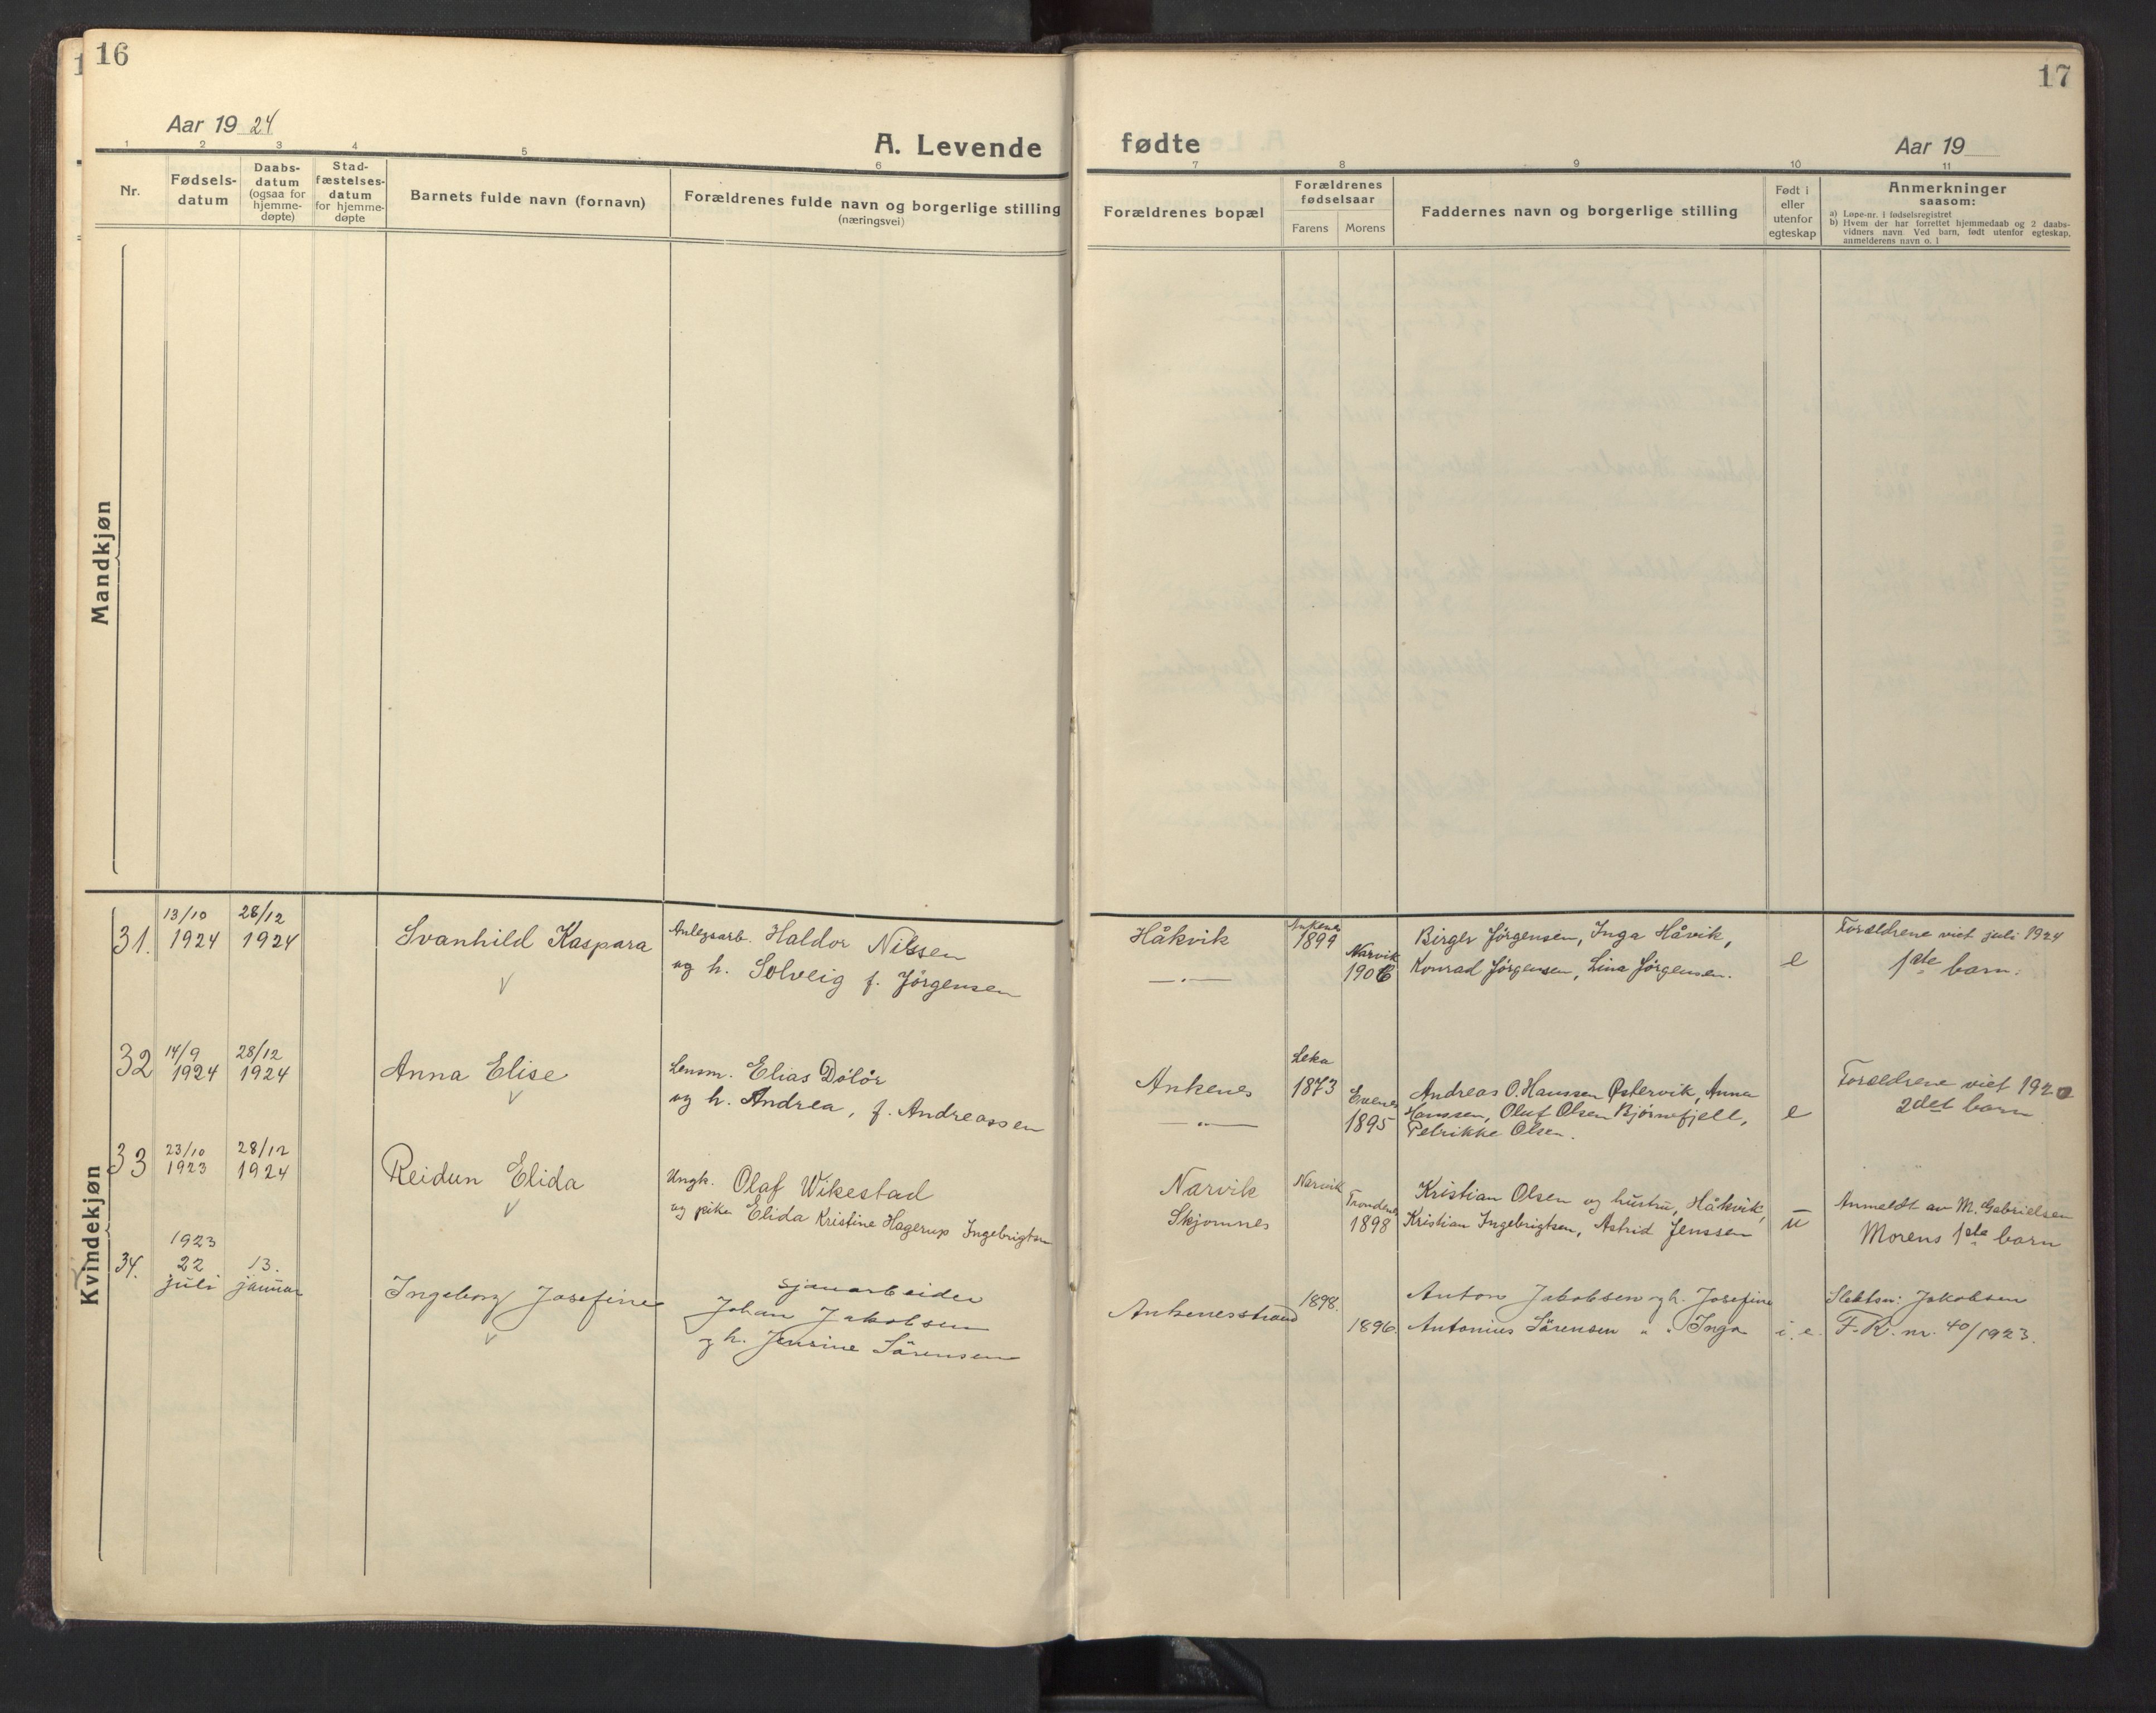 16
Aar 19 24
A. Levende
1 2 3 4 5 6
Nr.
Fødsels-
datum
Daabs-
datum
(ogsaa for
hjemme-
døpte)
Stad-
fæstelses-
datum
for hjemme-
døpte
Barnets fulde navn (fornavn)
Forældrenes fulde navn og borgerlige stilling
(næringsvei)
Mandkjøn
Kvindekjøn
31.
13/10
1924
28/12
1924
Svanhild Kaspara
Anlegsarb. Haldor Nilssen
og h. Solveig f. Jørgensen
32
14/9
1924
28/12
1924
Anna Elise
Lensm. Elias Dølør
og h. Andrea, f. Andreassen
33
23/10
1923
28/12
1924
Reidun Elida
Ungk. Olaf Wikestad
og pike Elida Kristine Hagerup Ingebrigtsen
34.
1923
22
juli
13.
januar
Ingeborg Josefine
Sjauarbeider
Johan Jakobsen
og h. Jensine Sørensen
17
fødte
Aar 19
7 8 9 10 11
Forældrenes bopæl
Forældrenes
fødselsaar
Farens Morens
Faddernes navn og borgerlige stilling
Født i
eller
utenfor
egteskap
Anmerkninger
saasom:
a) Løpe-nr. i fødselsregistret
b) Hvem der har forrettet hjemmedaab og 2 daabs-
vidners navn Ved barn, født utenfor egteskap,
anmelderens navn o. l
Håkvik
—„—
Ankenes
1899
Narvik
1906
Birger Jørgensen, Inga Håvik,
Konrad Jørgensen, Lina Jørgensen.
e
Forældrene viet juli 1924
1ste barn.
Ankenes
—„—
Leka
1873
Evenes
1895
Andreas O. Hanssen Østervik, Anna
Hanssen, Oluf Olsen Bjørnefjell,
Petrikke Olsen.
e
Forældrene viet 1920
2det barn
Narvik
Skjomnes
Narvik
Trondenes
1898
Kristian Olsen og hustru, Håkvik,
Kristian Ingebrigtsen, Astrid Jenssen
u
Anmeldt av M. Gabrielsen
Morens 1ste barn
Ankenesstrand
1898.
1896.
Anton Jakobsen og h. Josefine
Antonius Sørensen " " Inga
i. e.
Slektsn: Jakobsen
F. R. nr. 40/1923.